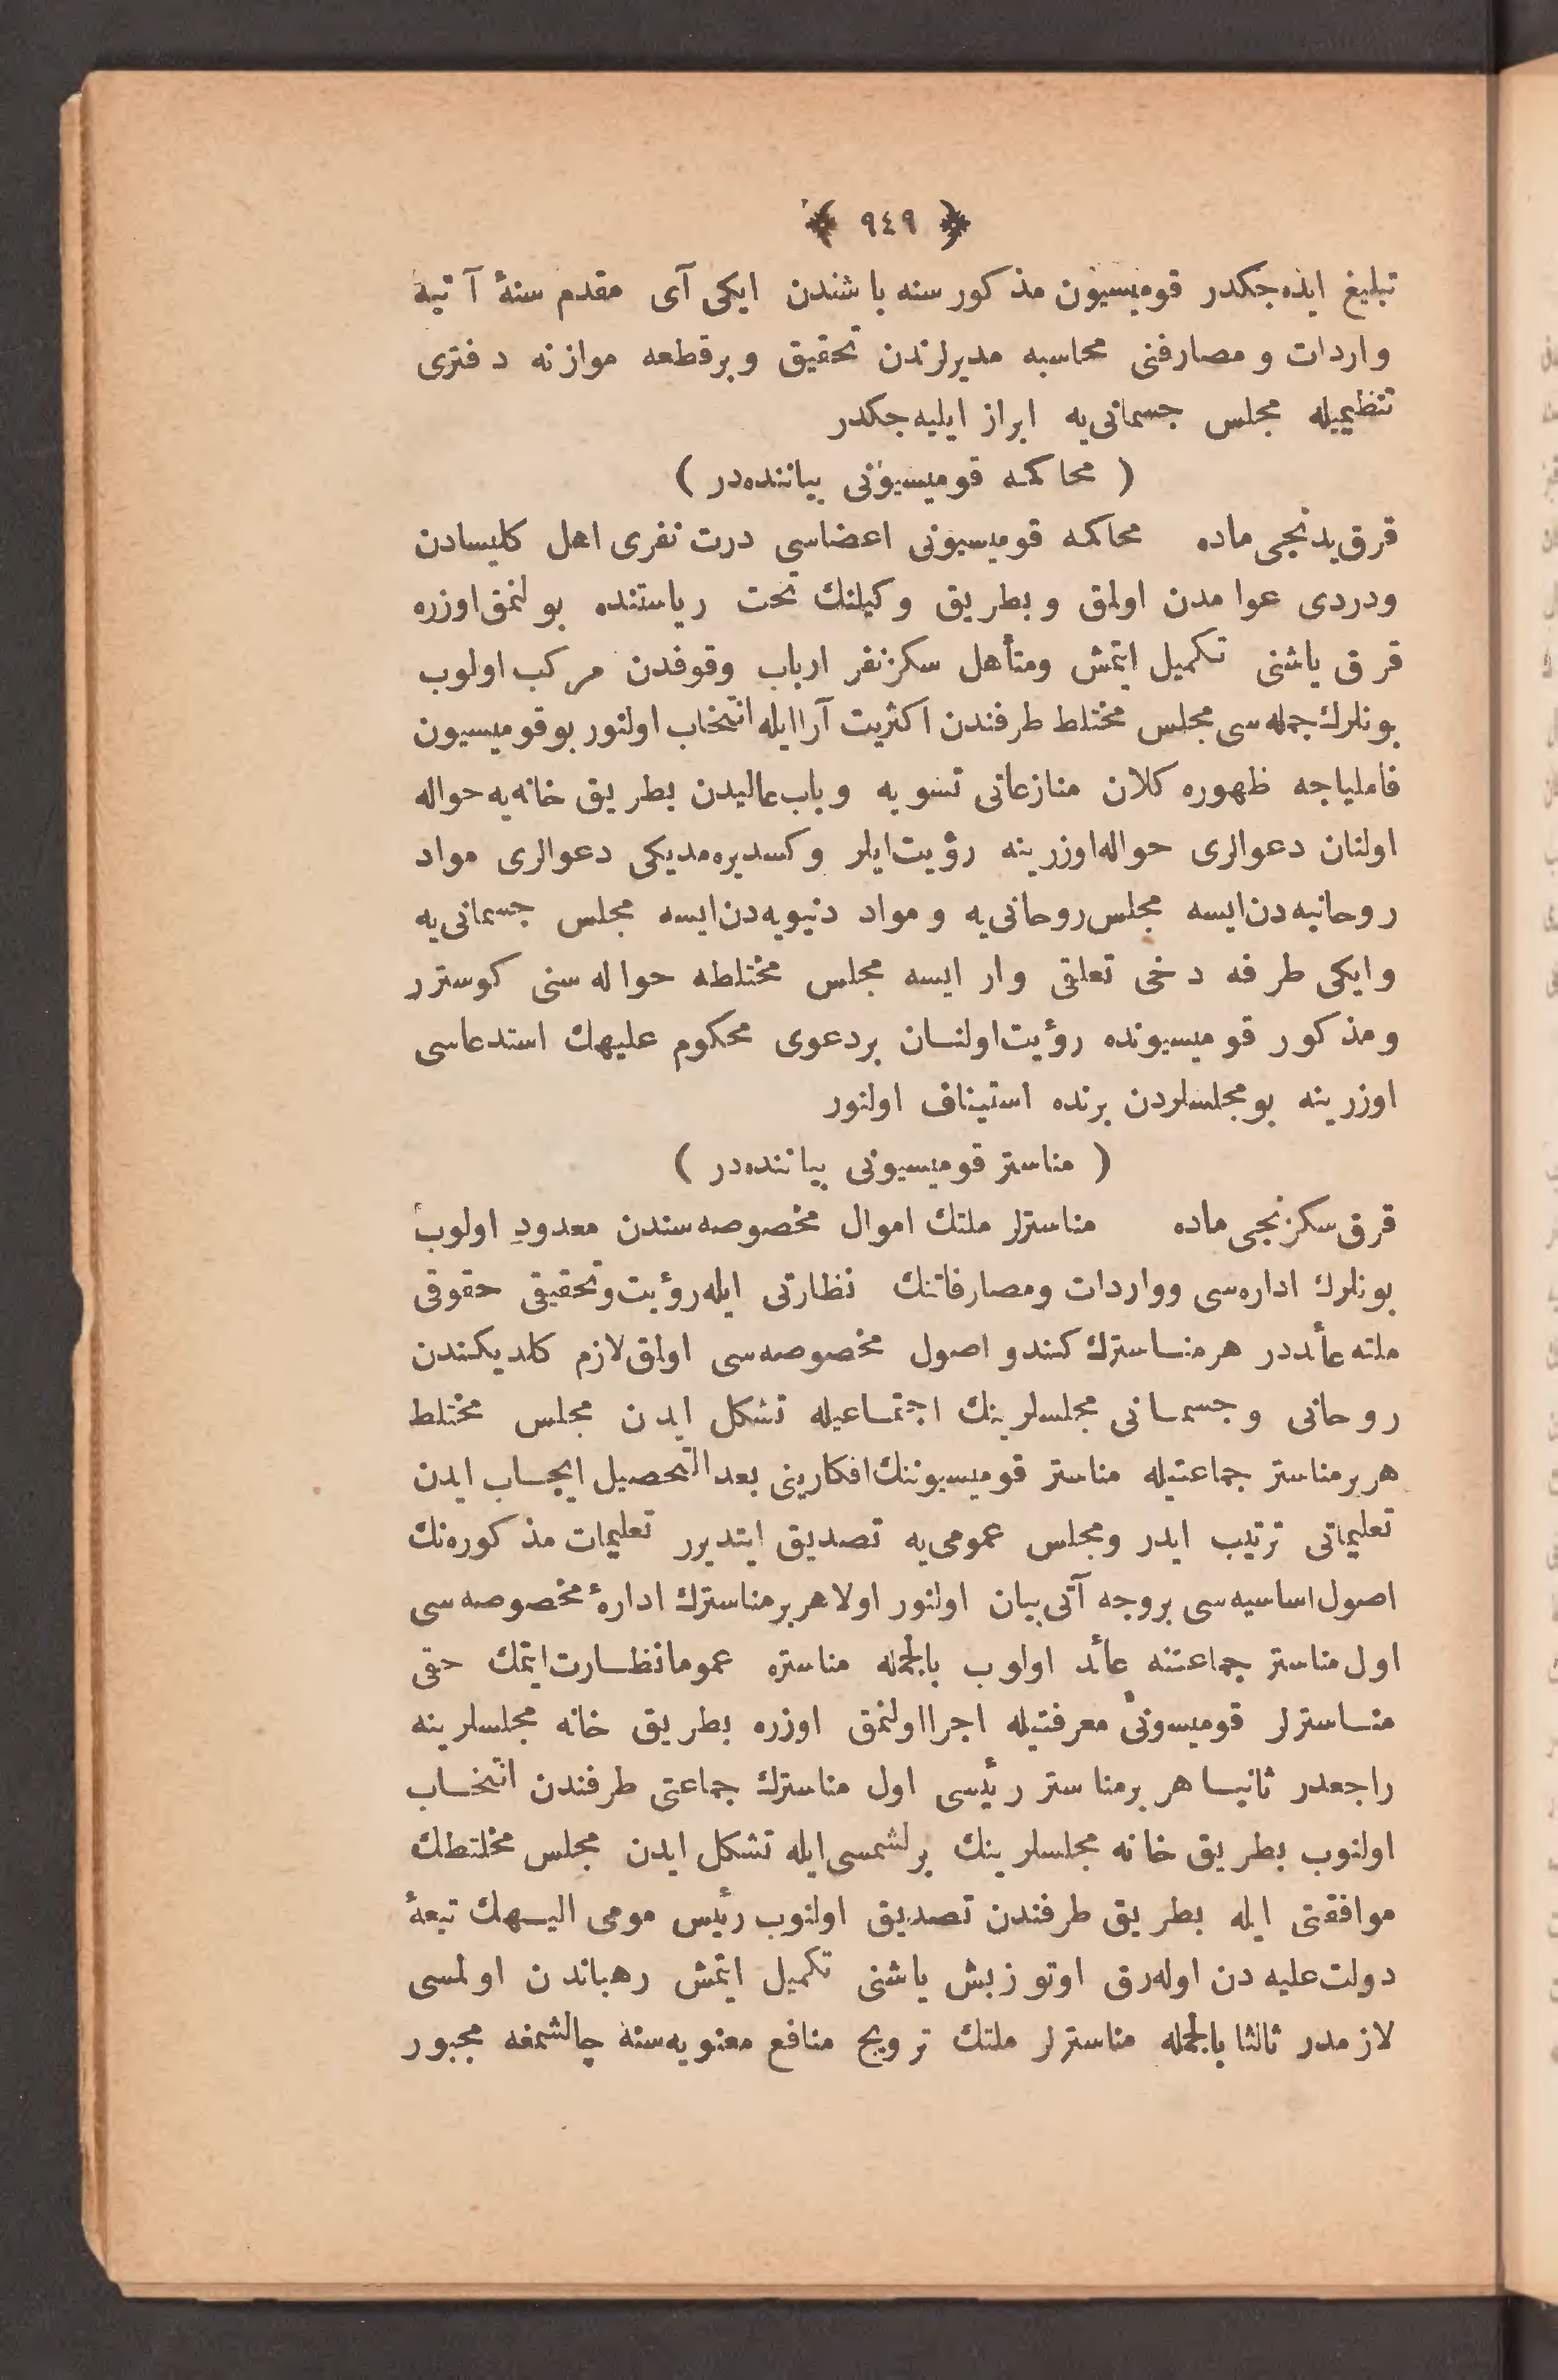 ﴿ ٩٤٩ ﴾
تبليغ ايده‌جكدر قوميسيون مذكور سنه باشندن ايكى آى مقدم سنۀ آتيه
واردات و مصارفنى محاسبه مديرلرندن تحقيق و برقطعه موازنه دفترى
تنظيميله مجلس جسمانى‌يه ابراز ايليه‌جكدر
( محاكمه قوميسيونى بياننده‌در )
قرق يدنجى ماده محاكمه قوميسيونى اعضاسى درت نفرى اهل كليسادن
ودردى عوامدن اولمق و بطريق وكيلنك تحت رياستنده بولنمق اوزره
قرق ياشنى تكميل ايتمش ومتأهل سكز نفر ارباب وقوفدن مركب اولوب
بونلرك جمله‌سى مجلس مختلط طرفندن اكثريت آرا ايله انتخاب اولنور بو قوميسيون
فاملياجه ظهوره كلان منازعاتى تسويه و باب عاليدن بطريق خانه‌يه حواله
اولنان دعوالرى حواله اوزرينه رؤيت ايلر و كسديره‌مديكى دعوالرى مواد
روحانيه‌دن ايسه مجلس روحانى‌يه و مواد دنيويه‌دن ايسه مجلس جسمانى‌يه
وايكى طرفه دخى تعلقى وار ايسه مجلس مختلطه حواله‌سنى كوسترر
ومذكور قوميسيونده رؤيت اولنان بردعوى محكوم عليهك استدعاسى
اوزرينه بو مجلسلردن برنده استيناف اولنور
( مناستر قوميسيونى بياننده‌در )
قرق سكزنجى ماده مناسترلر ملتك اموال مخصوصه‌سندن معدود اولوب
بونلرك اداره‌سى وواردات ومصارفاتنك نظارتى ايله رؤيت وتحقيقى حقوقى
ملته عائددر هر مناسترك كندو اصول مخصوصه‌سى اولق لازم كلديكندن
روحانى و جسمانى مجلسلرينك اجتماعيله تشكل ايدن مجلس مختلط
هر بر مناستر جماعتيله مناستر قوميسيوننك افكارينى بعد التحصيل ايجاب ايدن
تعليماتى ترتيب ايدر ومجلس عمومى‌يه تصديق ايتديرر تعليمات مذكوره‌نك
اصول اساسيه‌سى بروجه آتى بيان اولنور اولا هر بر مناسترك ادارۀ مخصوصه‌سى
اول مناستر جماعتنه عائد اولوب بالجمله مناستره عموما نظارت ايتمك حقى
مناسترلر قوميسونى معرفتيله اجرا اولنمق اوزره بطريق خانه مجلسلرينه
راجعدر ثانيا هر برمناستر رئيسى اول مناسترك جماعتى طرفندن انتخاب
اولنوب بطريق خانه مجلسلرينك برلشمسى ايله تشكل ايدن مجلس مخلتطك
موافقتى ايله بطريق طرفندن تصديق اولنوب رئيس مومى اليهك تبعۀ
دولت عليه دن اوله‌رق اوتوز بش ياشنى تكميل ايتمش رهباندن اولمسى
لازمدر ثالثا بالجمله مناسترلر ملتك ترويج منافع معنويه‌سنه چالشمغه مجبور